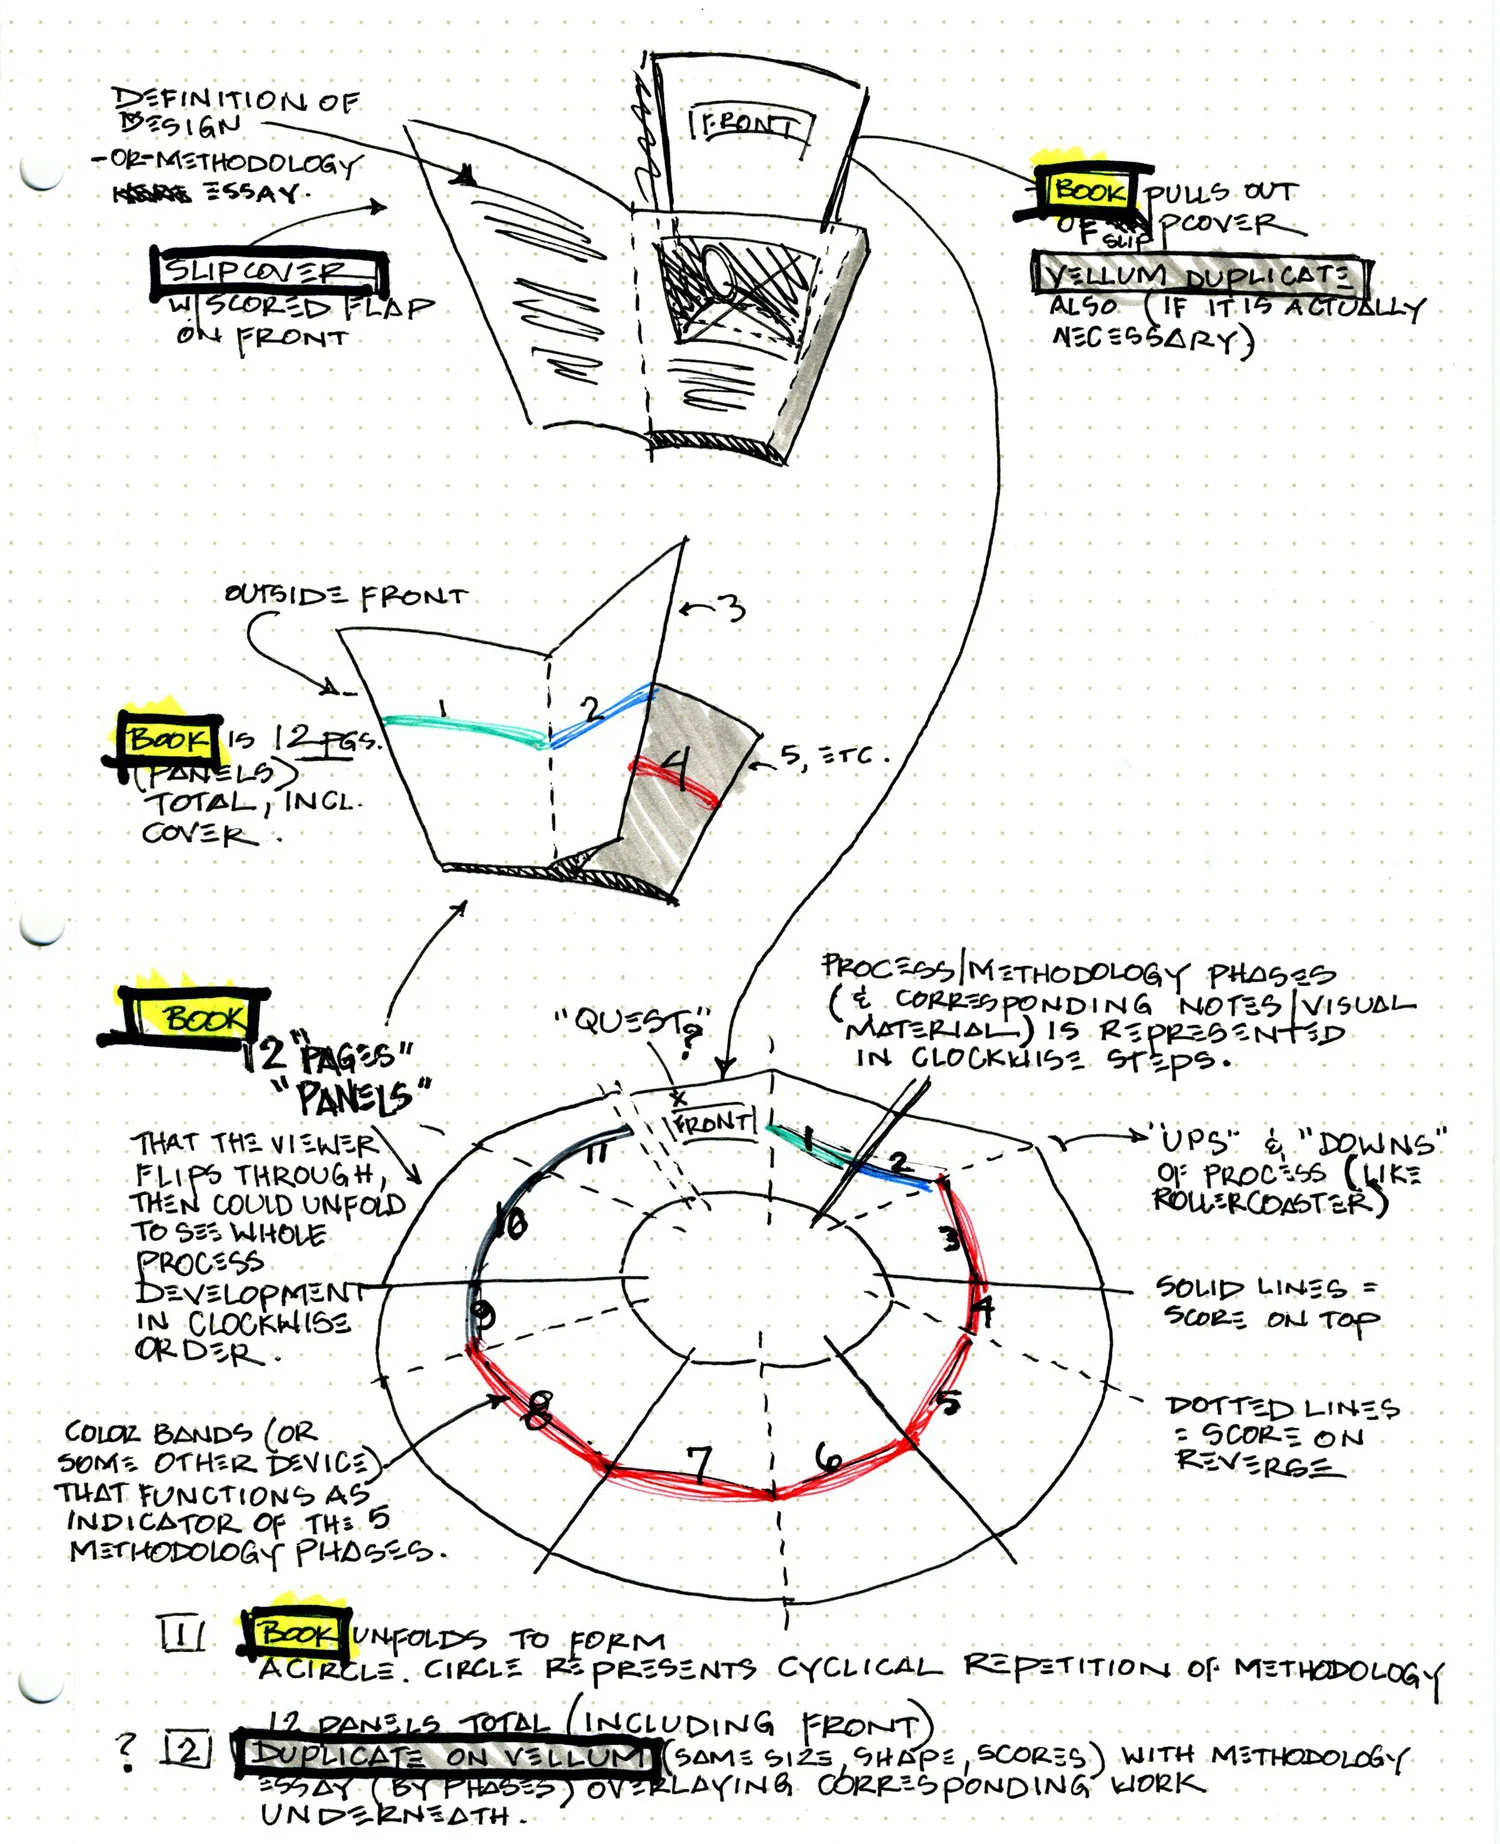 DEFINITION OF
DESIGN
-OR-METHODOLOGY
ESSAY.
SLIPCOVER
W/SCORED FLAP
ON FRONT
FRONT
BOOK PULLS OUT
OF SLIPCOVER
VELLUM DUPLICATE
ALSO (IF IT IS ACTUALLY
NECESSARY)
OUTSIDE FRONT
3
1
2
4
5, ETC.
BOOK IS 12 PGS.
(PANELS)
TOTAL, INCL.
COVER.
BOOK
12 "PAGES"
"PANELS"
THAT THE VIEWER
FLIPS THROUGH,
THEN COULD UNFOLD
TO SEE WHOLE
PROCESS
DEVELOPMENT
IN CLOCKWISE
ORDER.
"QUEST"
?
PROCESS/METHODOLOGY PHASES
(& CORRESPONDING NOTES/VISUAL
MATERIAL) IS REPRESENTED
IN CLOCKWISE STEPS.
X
FRONT
1
2
3
4
5
6
7
8
9
10
11
"UPS" & "DOWNS"
OF PROCESS (LIKE
ROLLERCOASTER)
SOLID LINES =
SCORE ON TOP
DOTTED LINES
= SCORE ON
REVERSE
COLOR BANDS (OR
SOME OTHER DEVICE)
THAT FUNCTIONS AS
INDICATOR OF THE 5
METHODOLOGY PHASES.
1 BOOK UNFOLDS TO FORM
A CIRCLE. CIRCLE REPRESENTS CYCLICAL REPETITION OF METHODOLOGY
12 PANELS TOTAL (INCLUDING FRONT)
? 2 DUPLICATE ON VELLUM (SAME SIZE, SHAPE, SCORES) WITH METHODOLOGY
ESSAY (BY PHASES) OVERLAYING CORRESPONDING WORK
UNDERNEATH.